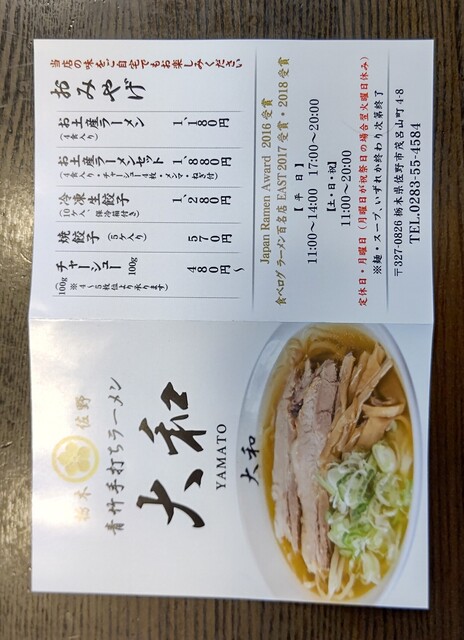 当店の味をご自宅でもお楽しみください
おみやげ
お土産ラーメン 1,180円
(4食入り)
お土産ラーメンセット 1,880円
(4食入り・チャーシュー4枚・メンマ・ねぎ付)
冷凍生餃子 1,280円
(10ヶ入・保冷箱付き)
焼餃子 (5ケ入り) 570円
チャーシュー 100g 480円~
100g
(※4~5枚位より承ります)
Japan Ramen Award 2016 受賞
食べログ ラーメン百名店 EAST 2017 受賞・2018 受賞
【平 日】
11:00~14:00 17:00~20:00
【土・日・祝】
11:00~20:00
定休日・月曜日(月曜日が祝祭日の場合翌火曜日休み)
※麺・スープ、いずれか終わり次第終了
〒327-0826 栃木県佐野市茂呂山町 4-8
TEL.0283-55-4584
栃木 佐野
青竹手打ちラーメン
大和
YAMATO
大和